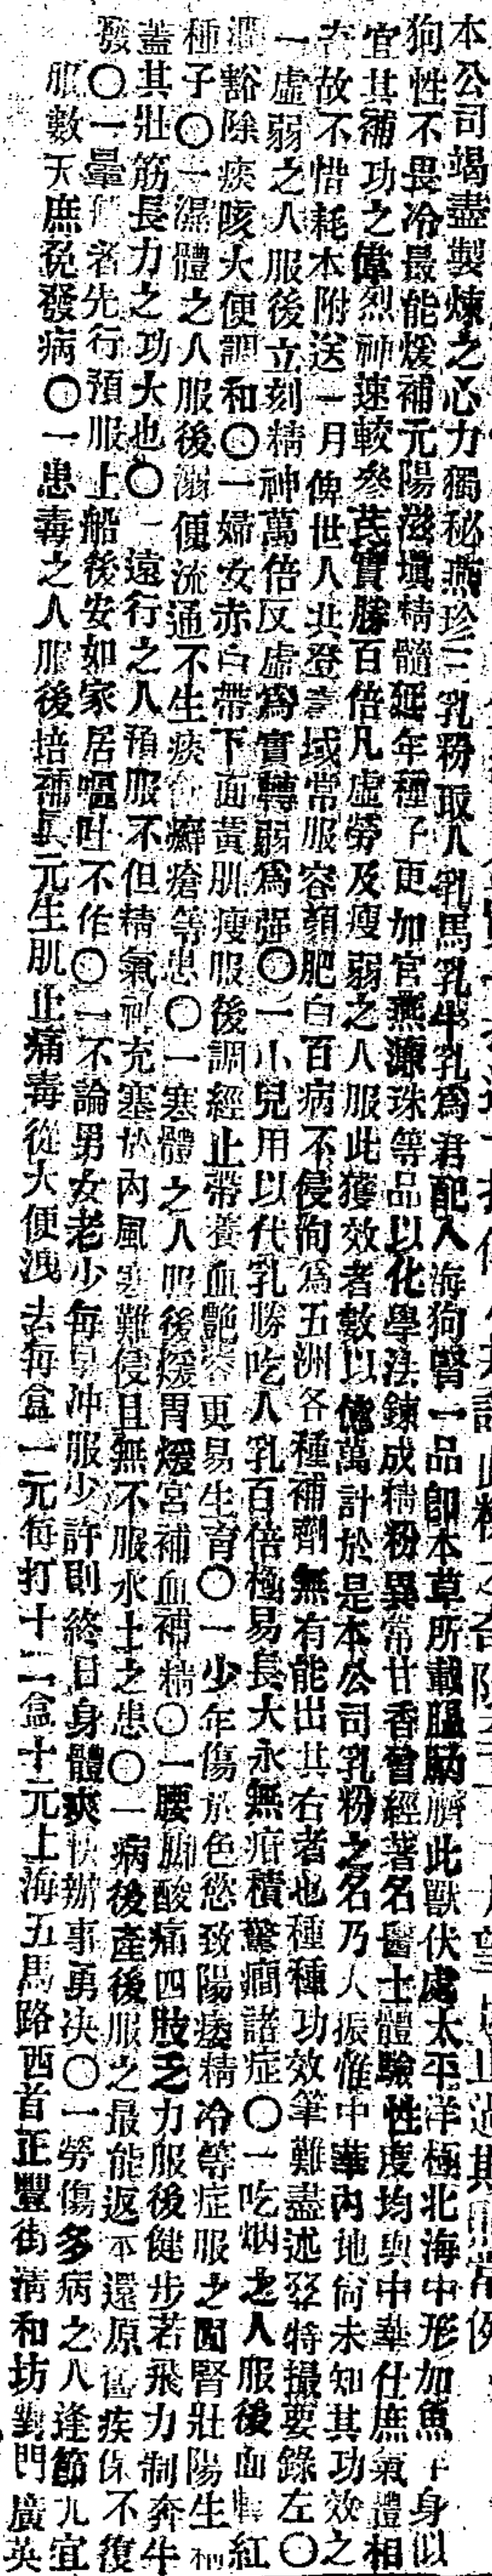 本公司竭盡製煉之心力獨秘燕珍三乳粉取人乳馬乳牛乳爲君配入海狗腎一品卽本草所載膃肭臍此獸伏處太平洋極北海中形加魚半身似
狗性不畏冷最能煖補元陽滋塡精髓延年種子更加官燕濂珠等品以化學法鍊成精粉異常甘香曾經著名醫士體驗性度均與中華仕庶氣體相
宜其補功之偉烈神速較參茋實勝百倍凡虛勞及瘦弱之人服此獲效者數以億萬計於是本公司乳粉之名乃大振惟中華內地尙未知其功效之
奇故不惜耗本附送一月俾世人共登壽域常服容顏肥白百病不侵洵爲五洲各種補劑無有能出其右者也種種功效筆難盡述茲特撮要錄左〇
一虛弱之人服後立刻精神萬倍反虛爲實轉弱爲强〇一小兒用以代乳勝吃人乳百倍極易長大永無疳積驚癎諸症〇一吃烟之人服後面轉紅
潤豁除痰咳大便調和〇一婦女赤白帶下面黃肌瘦服後調經止帶養血艶容更易生育〇一少年傷於色慾致陽痿精冷等症服之固腎壯陽生精
種子〇一濕體之人服後溺便流通不生痰 癬瘡等患〇一寒體之人服後煖胃煖宮補血補精〇一腰脚酸痛四肢乏力服後健步若飛力制奔牛
蓋其壯筋長力之功大也〇一遠行之人預服不但精氣神充塞於內風寒難侵且無不服水土之患〇一病後產後服之最能返本還原舊疾保不復
發〇一暈 者先行預服上船後安如家居嘔吐不作〇一不論男女老少每早冲服少許則終日身體爽快辦事勇決〇一勞傷多病之人逢節尤宜
服數天庶免發病〇一患毒之人服後培補眞元生肌止痛毒從大便洩去每盒一元每打十二盒十元上海五馬路西首正豐街淸和坊對門廣英